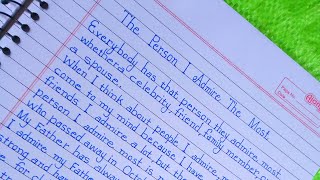 The Person I Admire The Most
Everybody has that person they admire most
whether a celebrity, friend, family member or
a spouse.
When I think about people I admire, m
come to my mind because I have
person I admire a lot, but the
who passed away in Oct
My Father has alway
admire my father
strong and ha